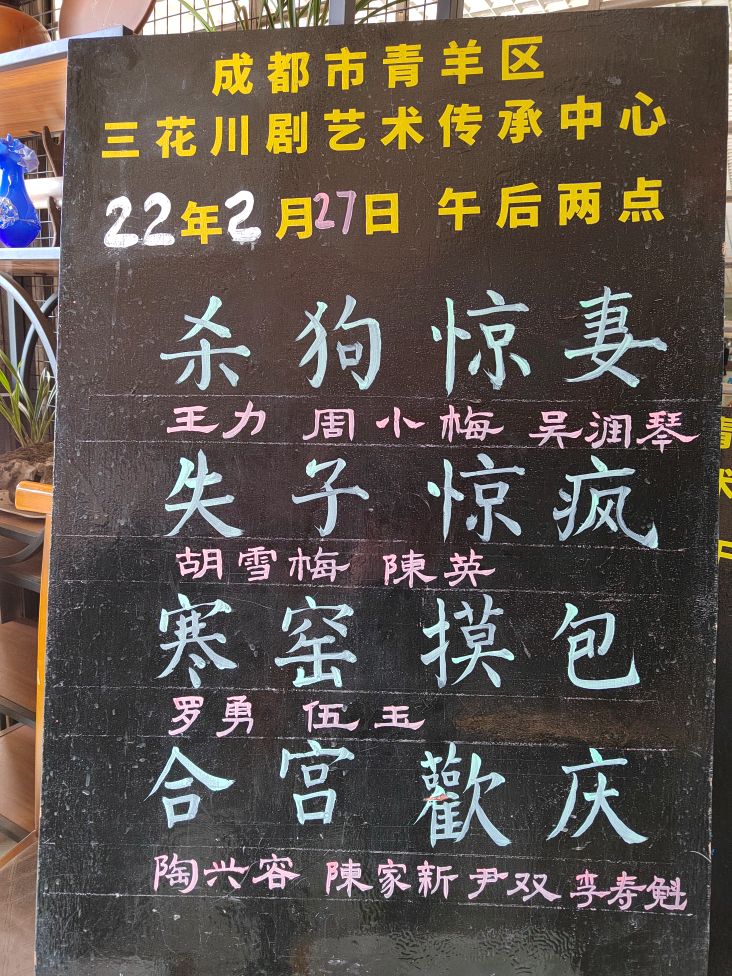 成都市青羊区
三花川剧艺术传承中心
22年2月27日 午后两点
杀狗惊妻
王力 周小梅 吴润琴
失子惊疯
胡雪梅 陳英
寒窑摸包
罗勇 伍玉
合宫歡庆
陶兴容 陳家新 尹双 李寿魁
青
术